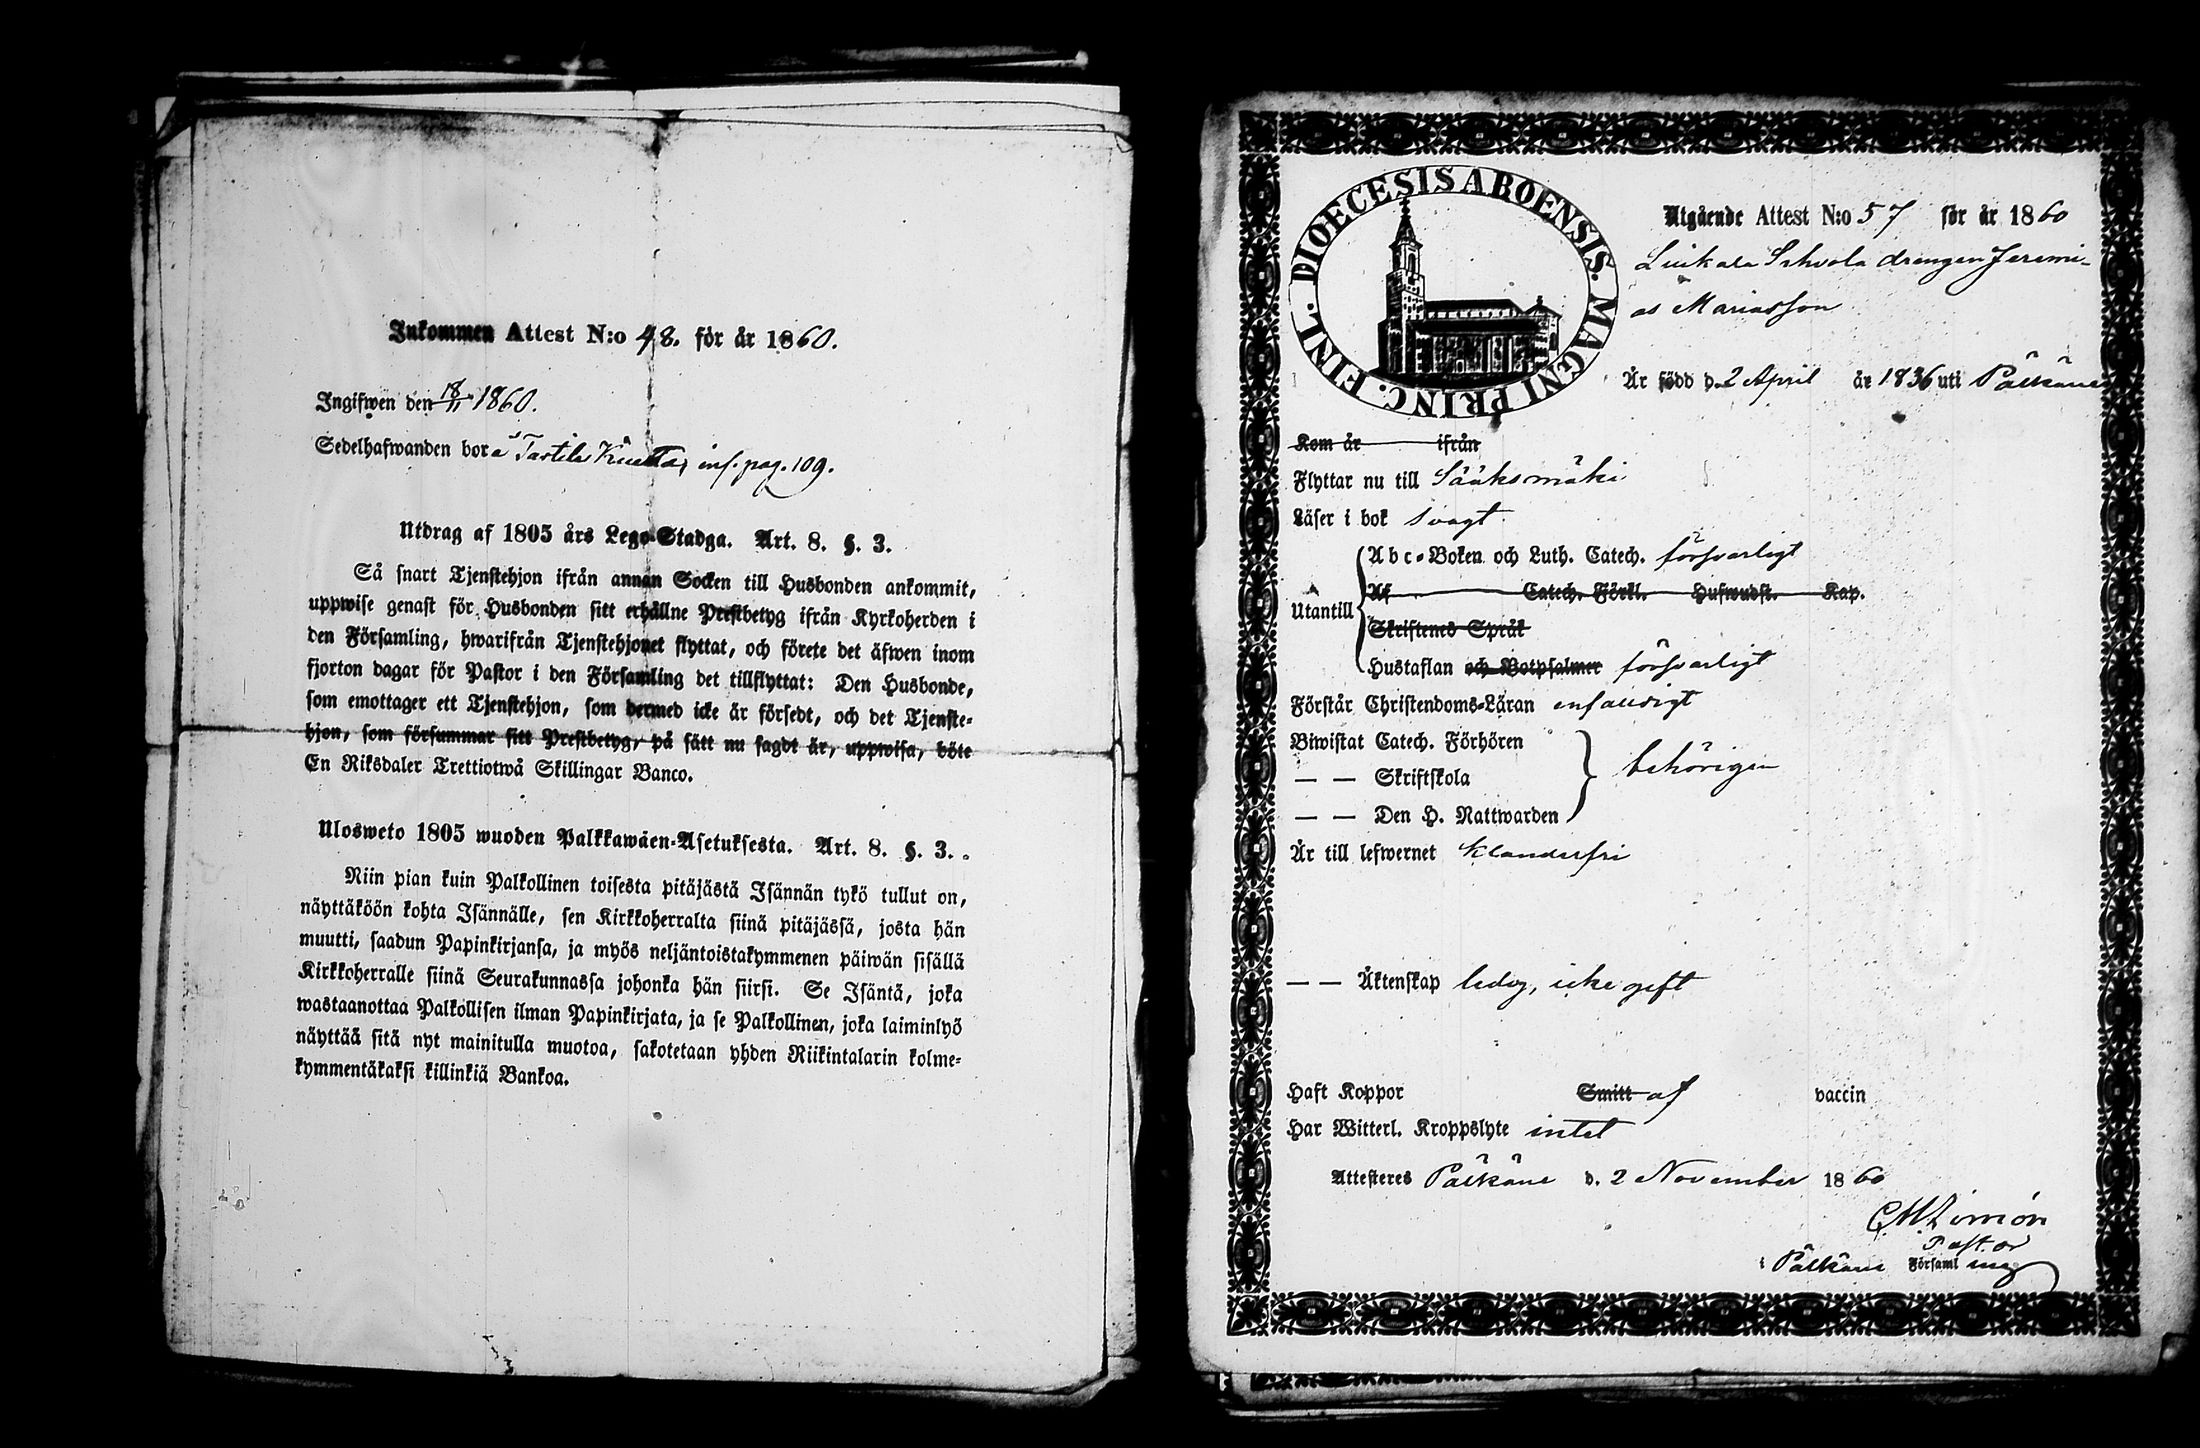 Inkommen Attest N:o 48. för år 1860.
Ingifwen den 18/11 1860.
Sedelhafwanden bor å inf. pag. 109.
Utdrag af 1805 års Lego-Stadga. Art. 8. §. 3.
Så snart Tjenstehjon ifrån annan Socken till Husbonden ankommit,
uppwise genast för Husbonden sitt erhållne Prestbetyg ifrån Kyrkoherden i
den Församling, hwarifrån Tjenstehjonet flyttat, och förete det äfwen inom
fjorton dagar för Pastor i den Församling det tillflyttat: Den Husbonde,
som emottager ett Tjenstehjon, som dermed icke är försedt, och det Tjenste-
hjon, som försummar sitt Prestbetyg, på sätt nu sagdt är, uppwisa, böte
En Riksdaler Trettiotwå Skillingar Banco.
Ulosweto 1805 wuoden Palkkawäen-Asetuksesta. Art. 8. §. 3.
Niin pian kuin Palkollinen toisesta pitäjästä Isännän tykö tullut on,
näyttäköön kohta Isännälle, sen Kirkkoherralta siinä pitäjässä, josta hän
muutti, saadun Papinkirjansa, ja myös neljäntoistakymmenen päiwän sisällä
Kirkkoherralle siinä Seurakunnassa johonka hän siirsi. Se Isäntä, joka
wastaanottaa Palkollisen ilman Papinkirjata, ja se Palkollinen, joka laiminlyö
näyttää sitä nyt mainitulla muotoa, sakotetaan yhden Riikintalarin kolme-
kymmentäkaksi killinkiä Bankoa.
DIOECESIS ABOENSIS. MAGNI PRINC. FINL.
Utgående Attest N:o 57 för år 1860
drengen Jeremi-
as Mariasson
Är född d. 2 April år 1836 uti Pälkäne
Kom år ifrån
Flyttar nu till Sääksmäki
Läser i bok svagt
Abc-Boken och Luth. Catech. försvarligt
Af Catech. Förkl. Hufwudst. Kap.
Utantill
Skriftenes Språk
Hustaflan och Botpsalmer försvarligt
Förstår Christendoms-Läran enfaldigt
Biwistat Catech. Förhören
— — Skriftskola behörigen
— — Den H. Nattwarden
Är till lefwernet klanderfri
— — Äktenskap ledig, icke gift
Haft Koppor Smitt af vaccin
Har Witterl. Kroppslyte intet
Attesteres Pälkäne d. 2 November 1860
Pastor
i Pälkäne Församling